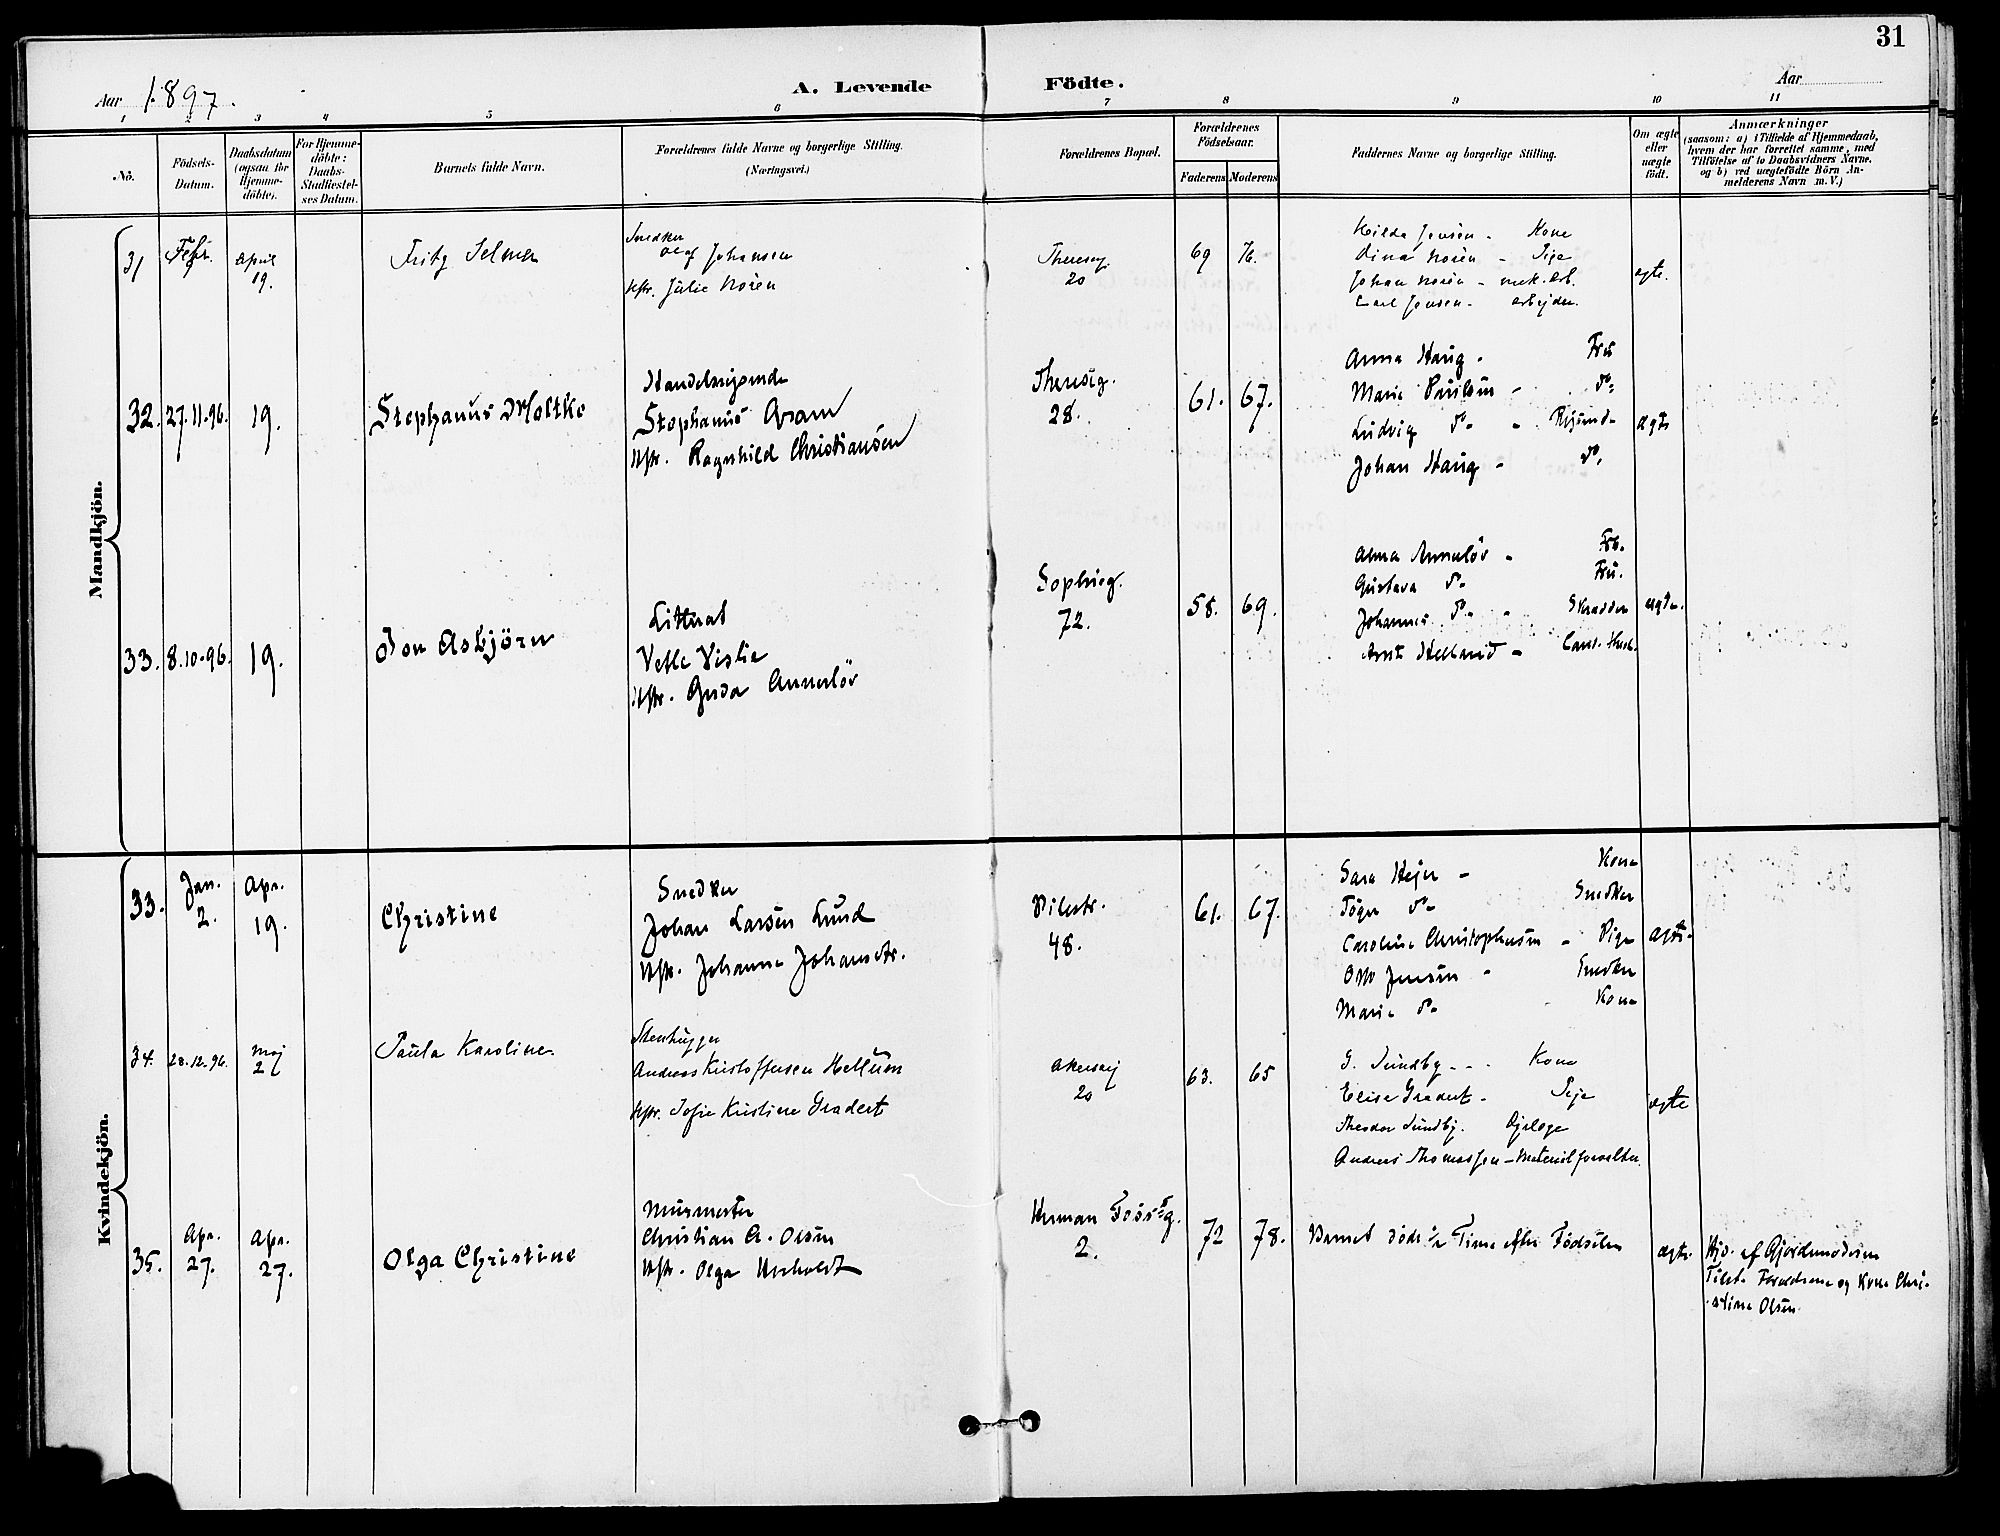 31
Aar 1897.
A. Levende Födte.
Aar
1 2 3 4 5 6 7 8 9 10 11
No.
Födsels-Datum.
Daabsdatum (ogsaa för Hjemme-döbte).
For Hjemme-döbte: Daabs-Stadfæstel-ses Datum.
Barnets fulde Navn.
Forældrenes fulde Navne og borgerlige Stilling. (Næringsvei.)
Forældrenes Bopæl.
Forældrenes Födselsaar.
Faderens Moderens
Faddernes Navne og borgerlige Stilling.
Om ægte eller uægte födt.
Anmærkninger
(saasom: a) i Tilfælde af Hjemmedaab,
hvem der har forrettet samme, med
Tilföielse af to Daabsvidners Navne.
og b) ved uægtefödte Börn An-
melderens Navn m. V.)
Mandkjön.
31 Febr. April 19. Fritz Selmer
Snedker
Olaf Johansen
Hstr. Julie Norén
Thereseg. 20
69 76.
Hilda Jensen - Kone
Dina Norén - Pige
Johan Norén - mek. arb.
Carl Jensen - arbejder.
ægte.
32. 27.11.96. 19. Stephanus Moltke
Handelsreisende
Stephanus Aram
Hstr. Ragnhild Christiansen
Theresesg. 28.
61. 67.
Anna Haug - Fru
Marie Paulsen - do
Ludvig do - Reisende
Johan Haug - do
ægte
33. 8.10.96. 19. Jon Asbjörn
Litterat
Vetle Vislie
Hstr. Gyda Annerlöv
Sophieg. 72.
58. 69.
Alma Annerlöv - Frk.
Gustava do Fru.
Johannes do - Skrædder
Arnt Helland - Cand.
ægte.
Kvindekjön.
33. Jan. 2. Apr. 19. Christine
Snedker
Johan Larsen Lund
Hstr. Johanne Johansdtr.
Pilestr. 48.
61. 67.
Sara Hejer - Kone
Töger do Snedker
Caroline Christophersen - Pige
Otto Jensen - Snedker
Marie do Kone
ægte.
34. 28.12.96. Maj 2 Paula Karoline
Stenhugger
Andreas Kristoffersen Hellum
Hstr. Sofie Kristine Gradert
Akersvej 20
63. 65
G. Sundby - Kone
Elise Gradert - Pige
Theodor Sundby.
Andreas Thomassen - Materialforvalter.
ægte
35. Apr. 27. Apr. 27. Olga Christine
Murmester
Christian A. Olsen
Hstr. Olga
Herman Foss's g. 2.
72 78.
Barnet döde ½ Time efter Födselen
ægte.
Hjd. af Gjordemoderen
Tilst. Forældrene og Kone Chri-
stine Olsen.